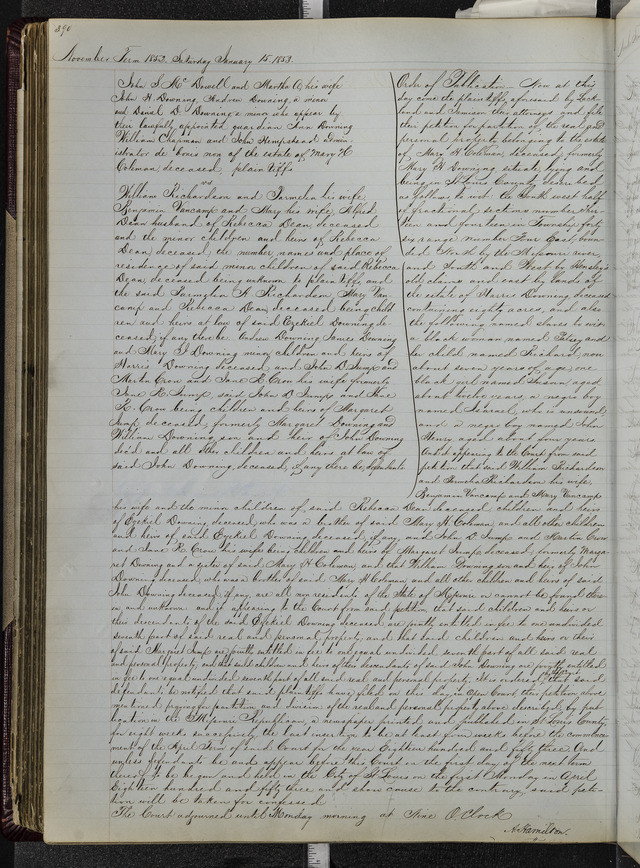 396
November Term 1852. Saturday January 15. 1853.
John S Mc Dowell and Martha A his wife
John H Downing, Andrew Downing, a minor
and Daniel D. Downing a minor who appear by
their lawfully appointed guardian Ann Downing
William Chapman and John Hempstead Admin-
istrator de bonis non of the estate of Mary H
Coleman deceased, plaintiffs
vs
William Richardson and Parmelia his wife,
Benjamin Vancamp and Mary his wife, Alfred
Dean husband of Rebecca Dean deceased
and the minor children and heirs of Rebecca
Dean deceased, the number, names and place of
residence of said minor children of said Rebecca
Dean deceased being unknown to plaintiffs, and
the said Richardson, Mary Van
camp and Rebecca Dean deceased being child
ren and heirs at law of said Ezekiel Downing de
ceased, if any there be. Andrew Downing James Downing
and Mary S Downing minor children and heirs of
Morris Downing deceased, and John D Jump and
Martin Crow and Jane K. Crow his wife formerly
Jane K. Jump, said John D Jump and Jane
K. Crow being children and heirs of Margaret
Jump deceased, formerly Margaret Downing and
William Downing son and heir of John Downing
dec'd and all other children and heirs at law of
said John Downing, deceased, if any there be, defendants
Order of Publication. Now at this
day come the plaintiffs, aforesaid by Lack
land and Jamison their attorneys and file
their petition for partition of the real and
personal property belonging to the estate
of Mary H Coleman deceased, formerly
Mary H Downing situate, lying and
being in St Louis County described
as follows to wit: the South west half
of fractional sections number thir-
teen and fourteen in Township forty
six range number Four East, boun
ded North by the Missouri river,
and South and West by Hensley's
old claims and east by lands of
the estate of Morris Downing, deceased
containing eighty acres, and also
the following named slaves to wit:
a black woman named Patsey and
her child named Richard, now
about seven years of age, one
black girl named Susan aged
about twelve years, a negro boy
named Israel, who is unsound,
and a negro boy named John
Henry aged about four years
And it appearing to the Court from said
petition that said William Richardson
and Richardson his wife,
Benjamin Vancamp and Mary Vancamp
his wife and the minor children of, said Rebecca Dean deceased children and heirs
of Ezekiel Downing, deceased, who was a brother of said Mary H Coleman, and all other children
and heirs of said Ezekiel Downing deceased, if any, and John D Jump and Martin Crow
and Jane K. Crow his wife being children and heirs of Margaret Jump, deceased, formerly Marga
ret Downing and a sister of said Mary H Coleman, and that William Downing son and heir of John
Downing deceased, who was a brother of said Mary H Coleman and all other children and heirs of said
John Downing deceased, if any, are all non residents of the State of Missouri or cannot be found there
in, and unknown. and it appearing to the Court from said petition that said children and heirs or
their descendants of the said Ezekiel Downing deceased are jointly entitled in fee to one undivided
seventh part of said real and personal property, and that said children and heirs or their
of said Margaret Jump are jointly entitled in fee to one equal undivided, seventh part of all said real
and personal property, and that said children and heirs or their descendants of said John Downing are jointly entitled
in fee to one equal undivided seventh part of all said real and personal property. It is ordered that said
defendants be notified that said plaintiffs have filed on this day in open Court their petition above
mentioned praying for partition and division of the real and personal property above described, by pub-
lication in the Missouri Republican, a newspaper printed and published in St Louis County
for eight weeks successively the last insertion to be at least four weeks before the commence
ment of the April Term of said Court for the year Eighteen hundred and fifty three. And
unless defendants be and appear before this Court on the first day of the next term
thereof, to be begun and held in the City of St Louis on the first Monday in April
Eighteen hundred and fifty three and show cause to the contrary, said peti-
tion will be taken for confessed
The Court adjourned until Monday morning at Nine O'Clock
A. Hamilton.